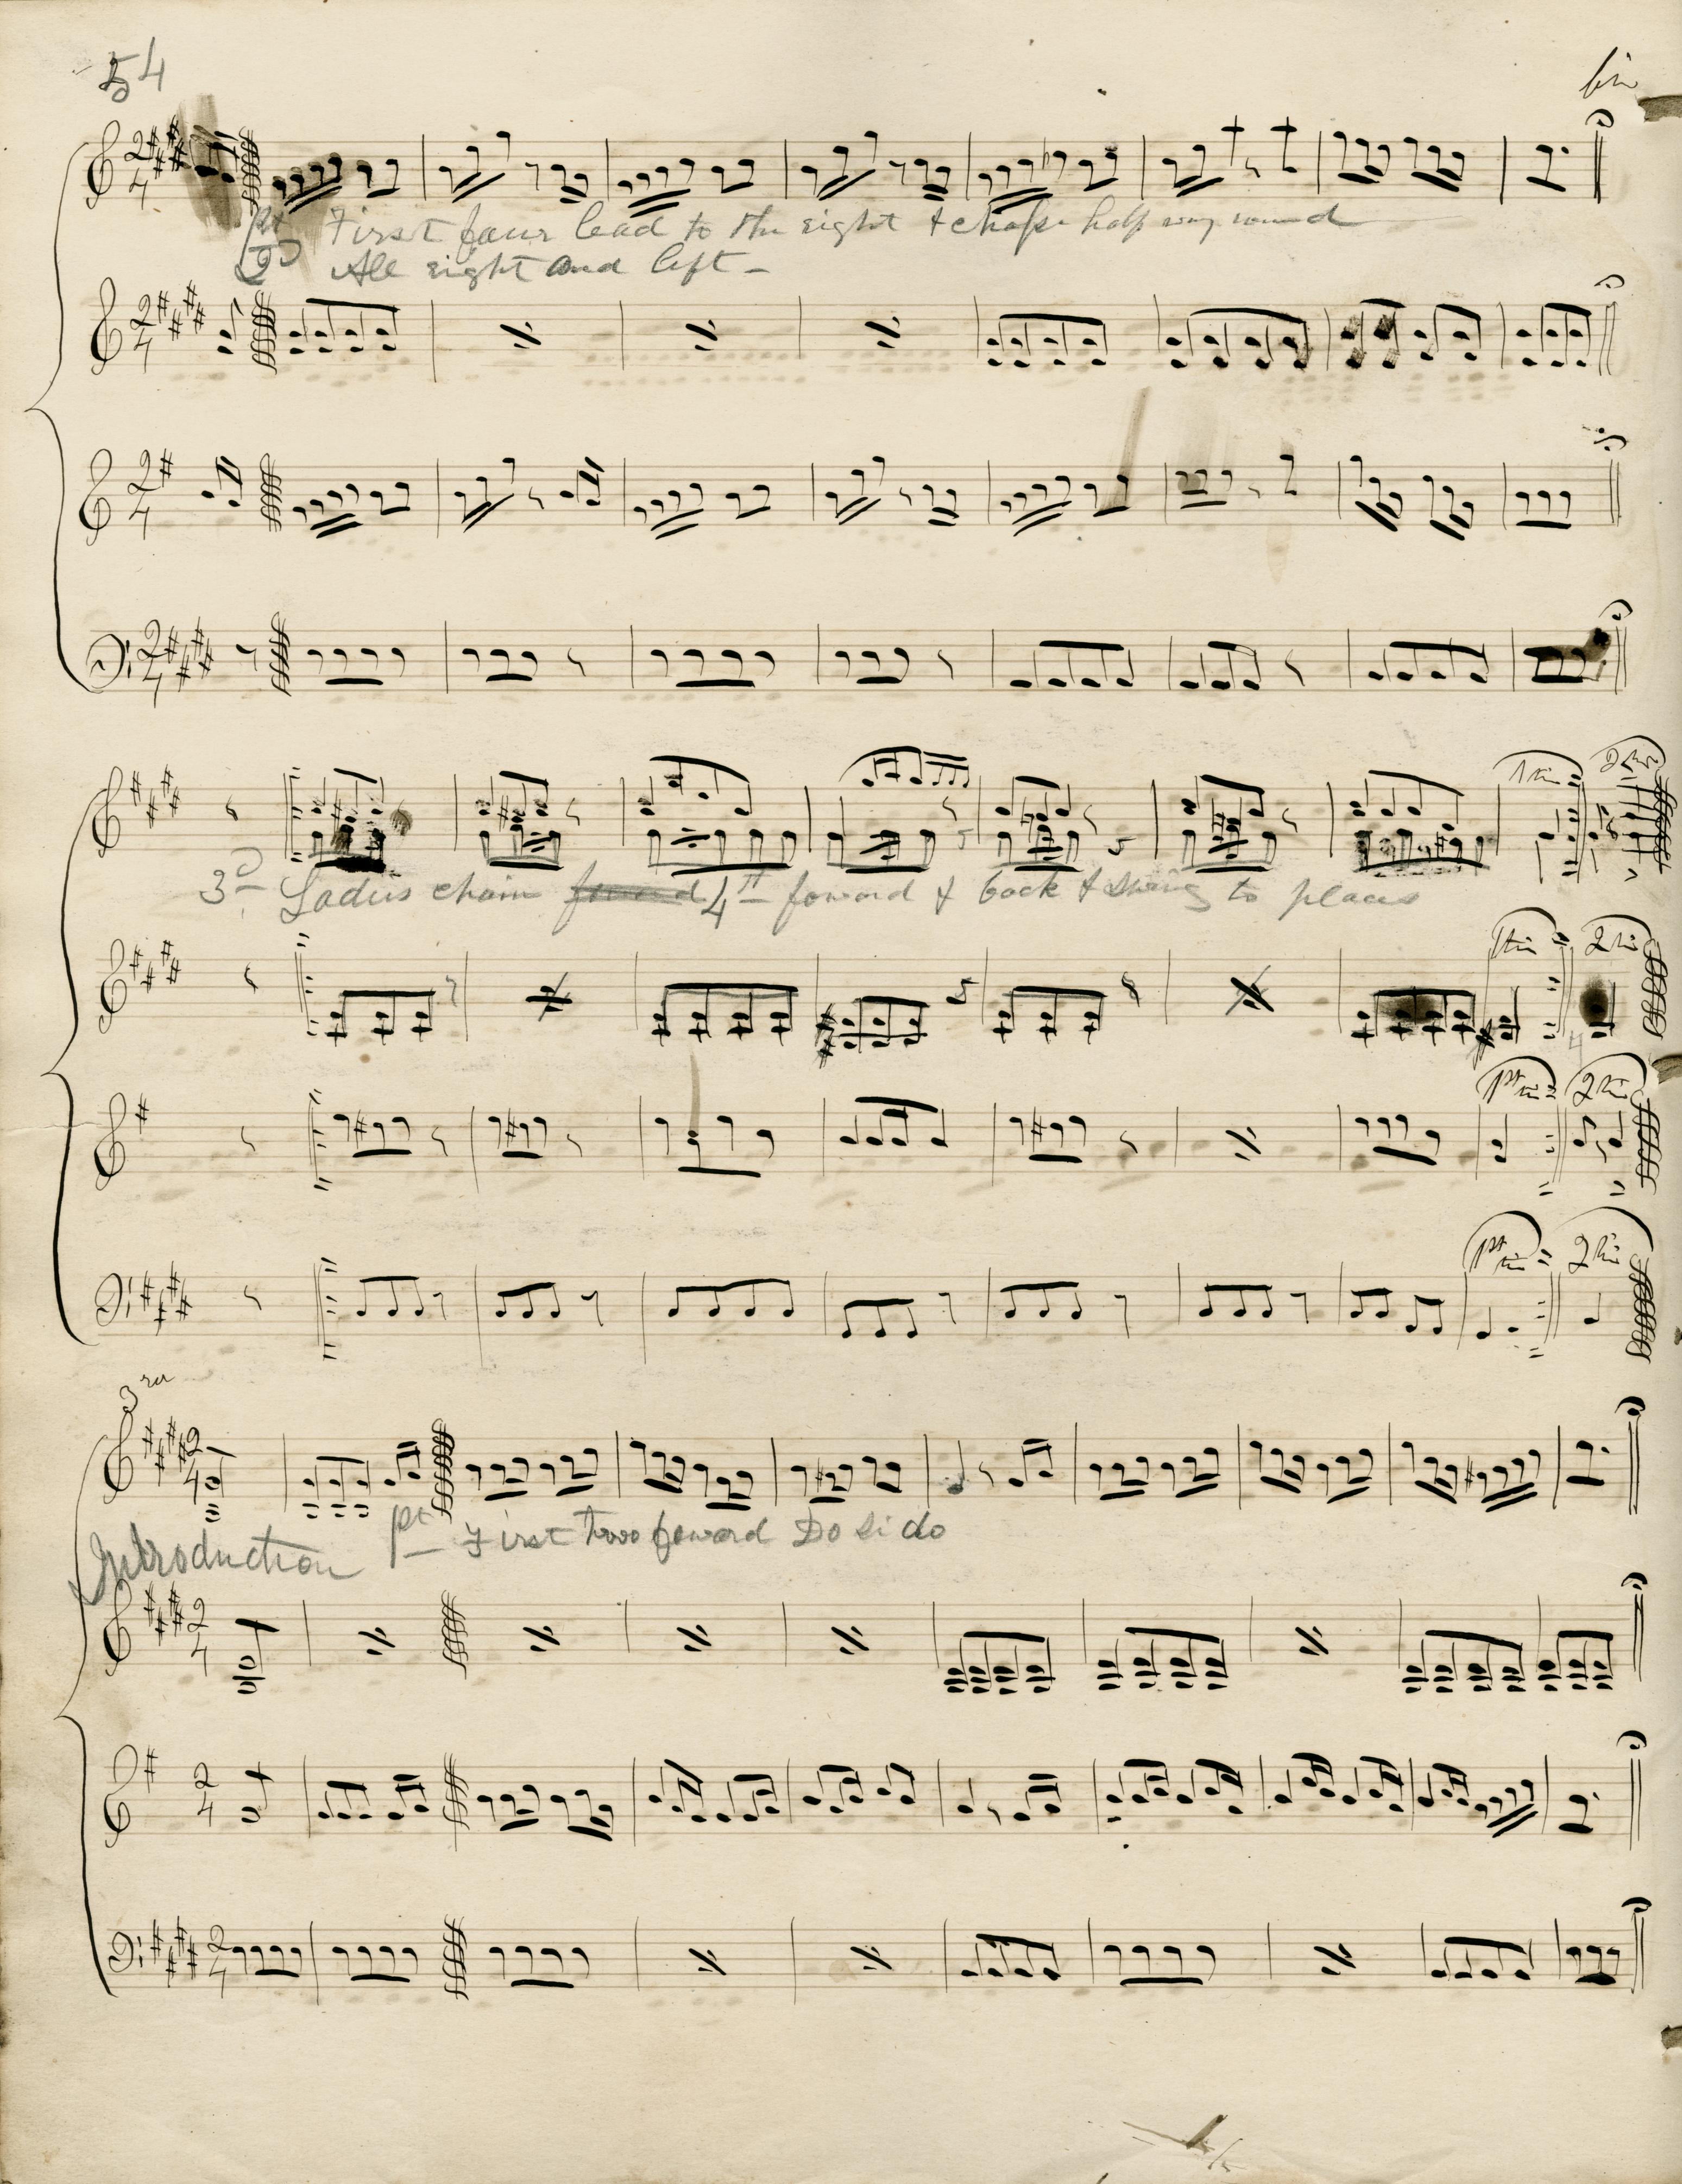 54
fin
2 4
1st First four lead to the right & chase half way round
2D All right and left -
2 4
2 4
2 4
3D Ladies chain foward 4th foward & back & swing to places
2
1st
1st
3
2 4
Introduction 1st First Two foward Do Si do
2 4
2 4
2 4